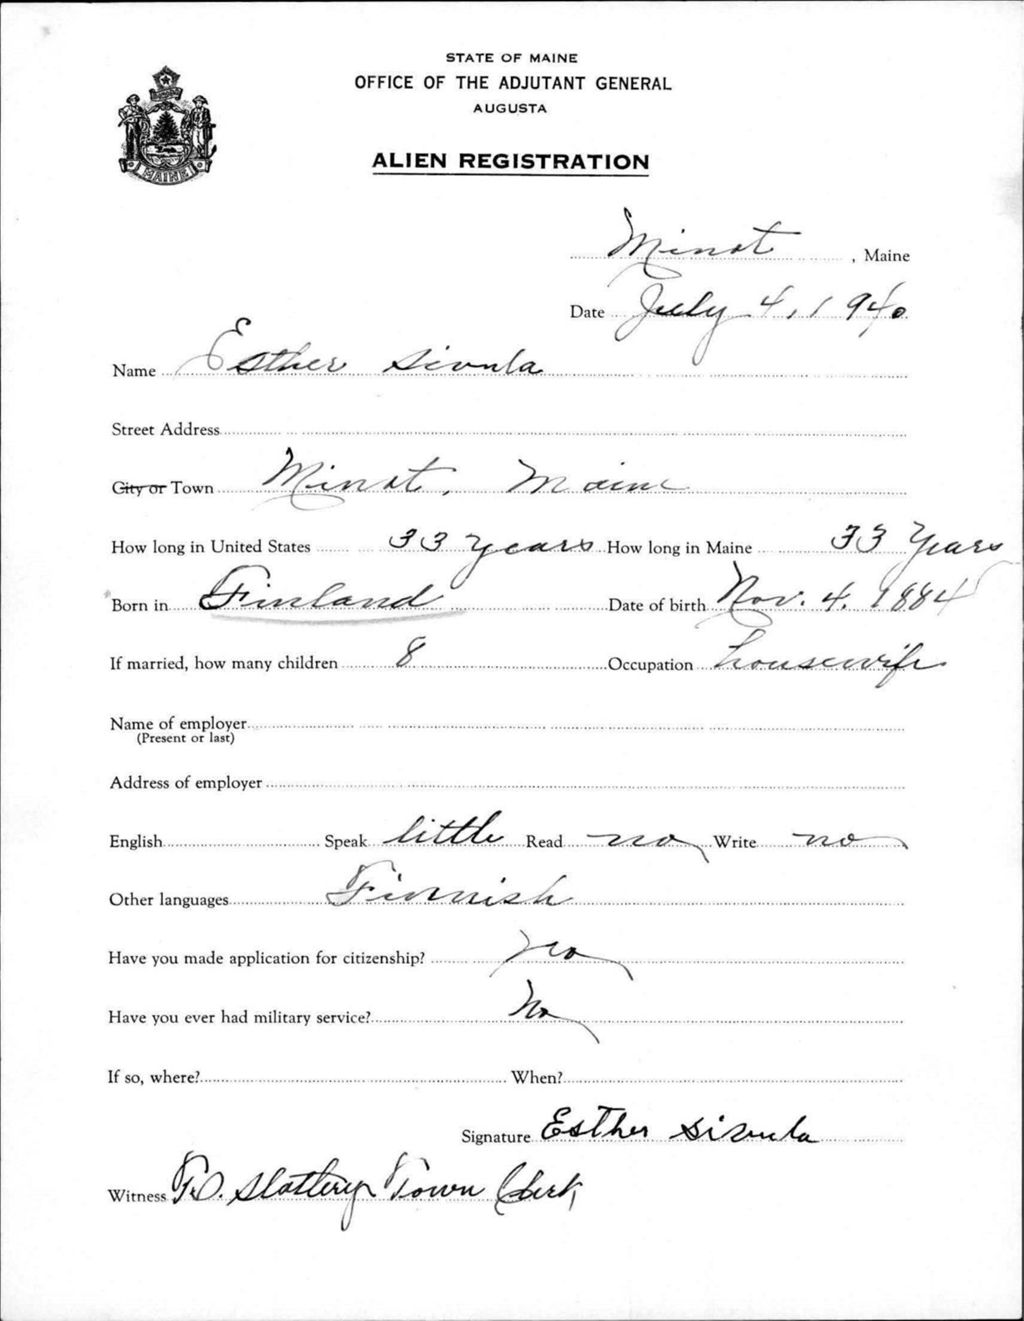 STATE OF MAINE
OFFICE OF THE ADJUTANT GENERAL
AUGUSTA
MAINE
ALIEN REGISTRATION
Minot, Maine
Date July 4, 1940
Name Esther Sivula
Street Address
City or Town Minot, Maine
How long in United States 33 Years How long in Maine 33 Years
Born in Finland Date of birth Nov. 4, 1884
If married, how many children 8 Occupation housewife
Name of employer
(Present or last)
Address of employer
English Speak little Read no Write no
Other languages Finnish
Have you made application for citizenship? no
Have you ever had military service? No
If so, where? When?
Signature Esther Sivula
Witness Slattery Town Clerk